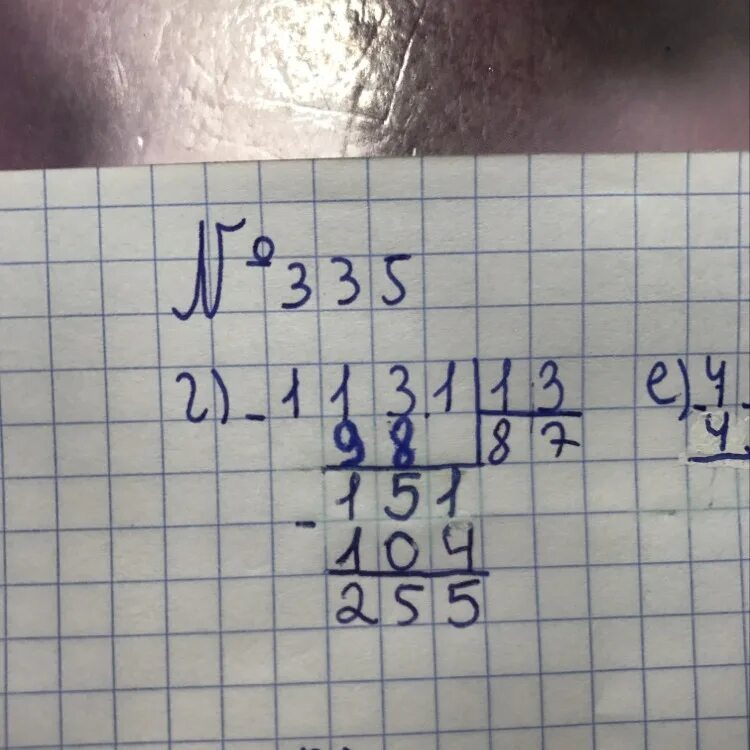 № 335
г) - 1131 | 13
98 | 87
- 151
104
255
е) 4
4